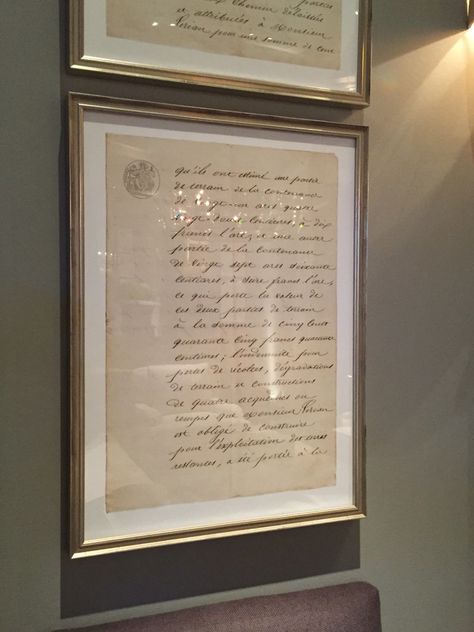 Chemin délaissés
et attribuées à Monsieur
Périan pour une somme de cinq
qu'ils ont estimé une partie
de terrain de la contenance
de vingt-un ares quatre
vingt-douze centiares, à dix
francs l'are, et une autre
partie de la contenance
de vingt sept ares soixante
centiares, à douze francs l'are,
ce que porte la valeur de
ces deux parties de terrain
à la somme de cinq cent
quarante cinq francs quarante
centimes; l'indemnité pour
pertes de récoltes, dégradations
de terrain et constructions
de quatre acqueducs ou
rampes que Monsieur Périan
est obligé de construire
pour l'exploitation des terres
restantes, a été portée à la